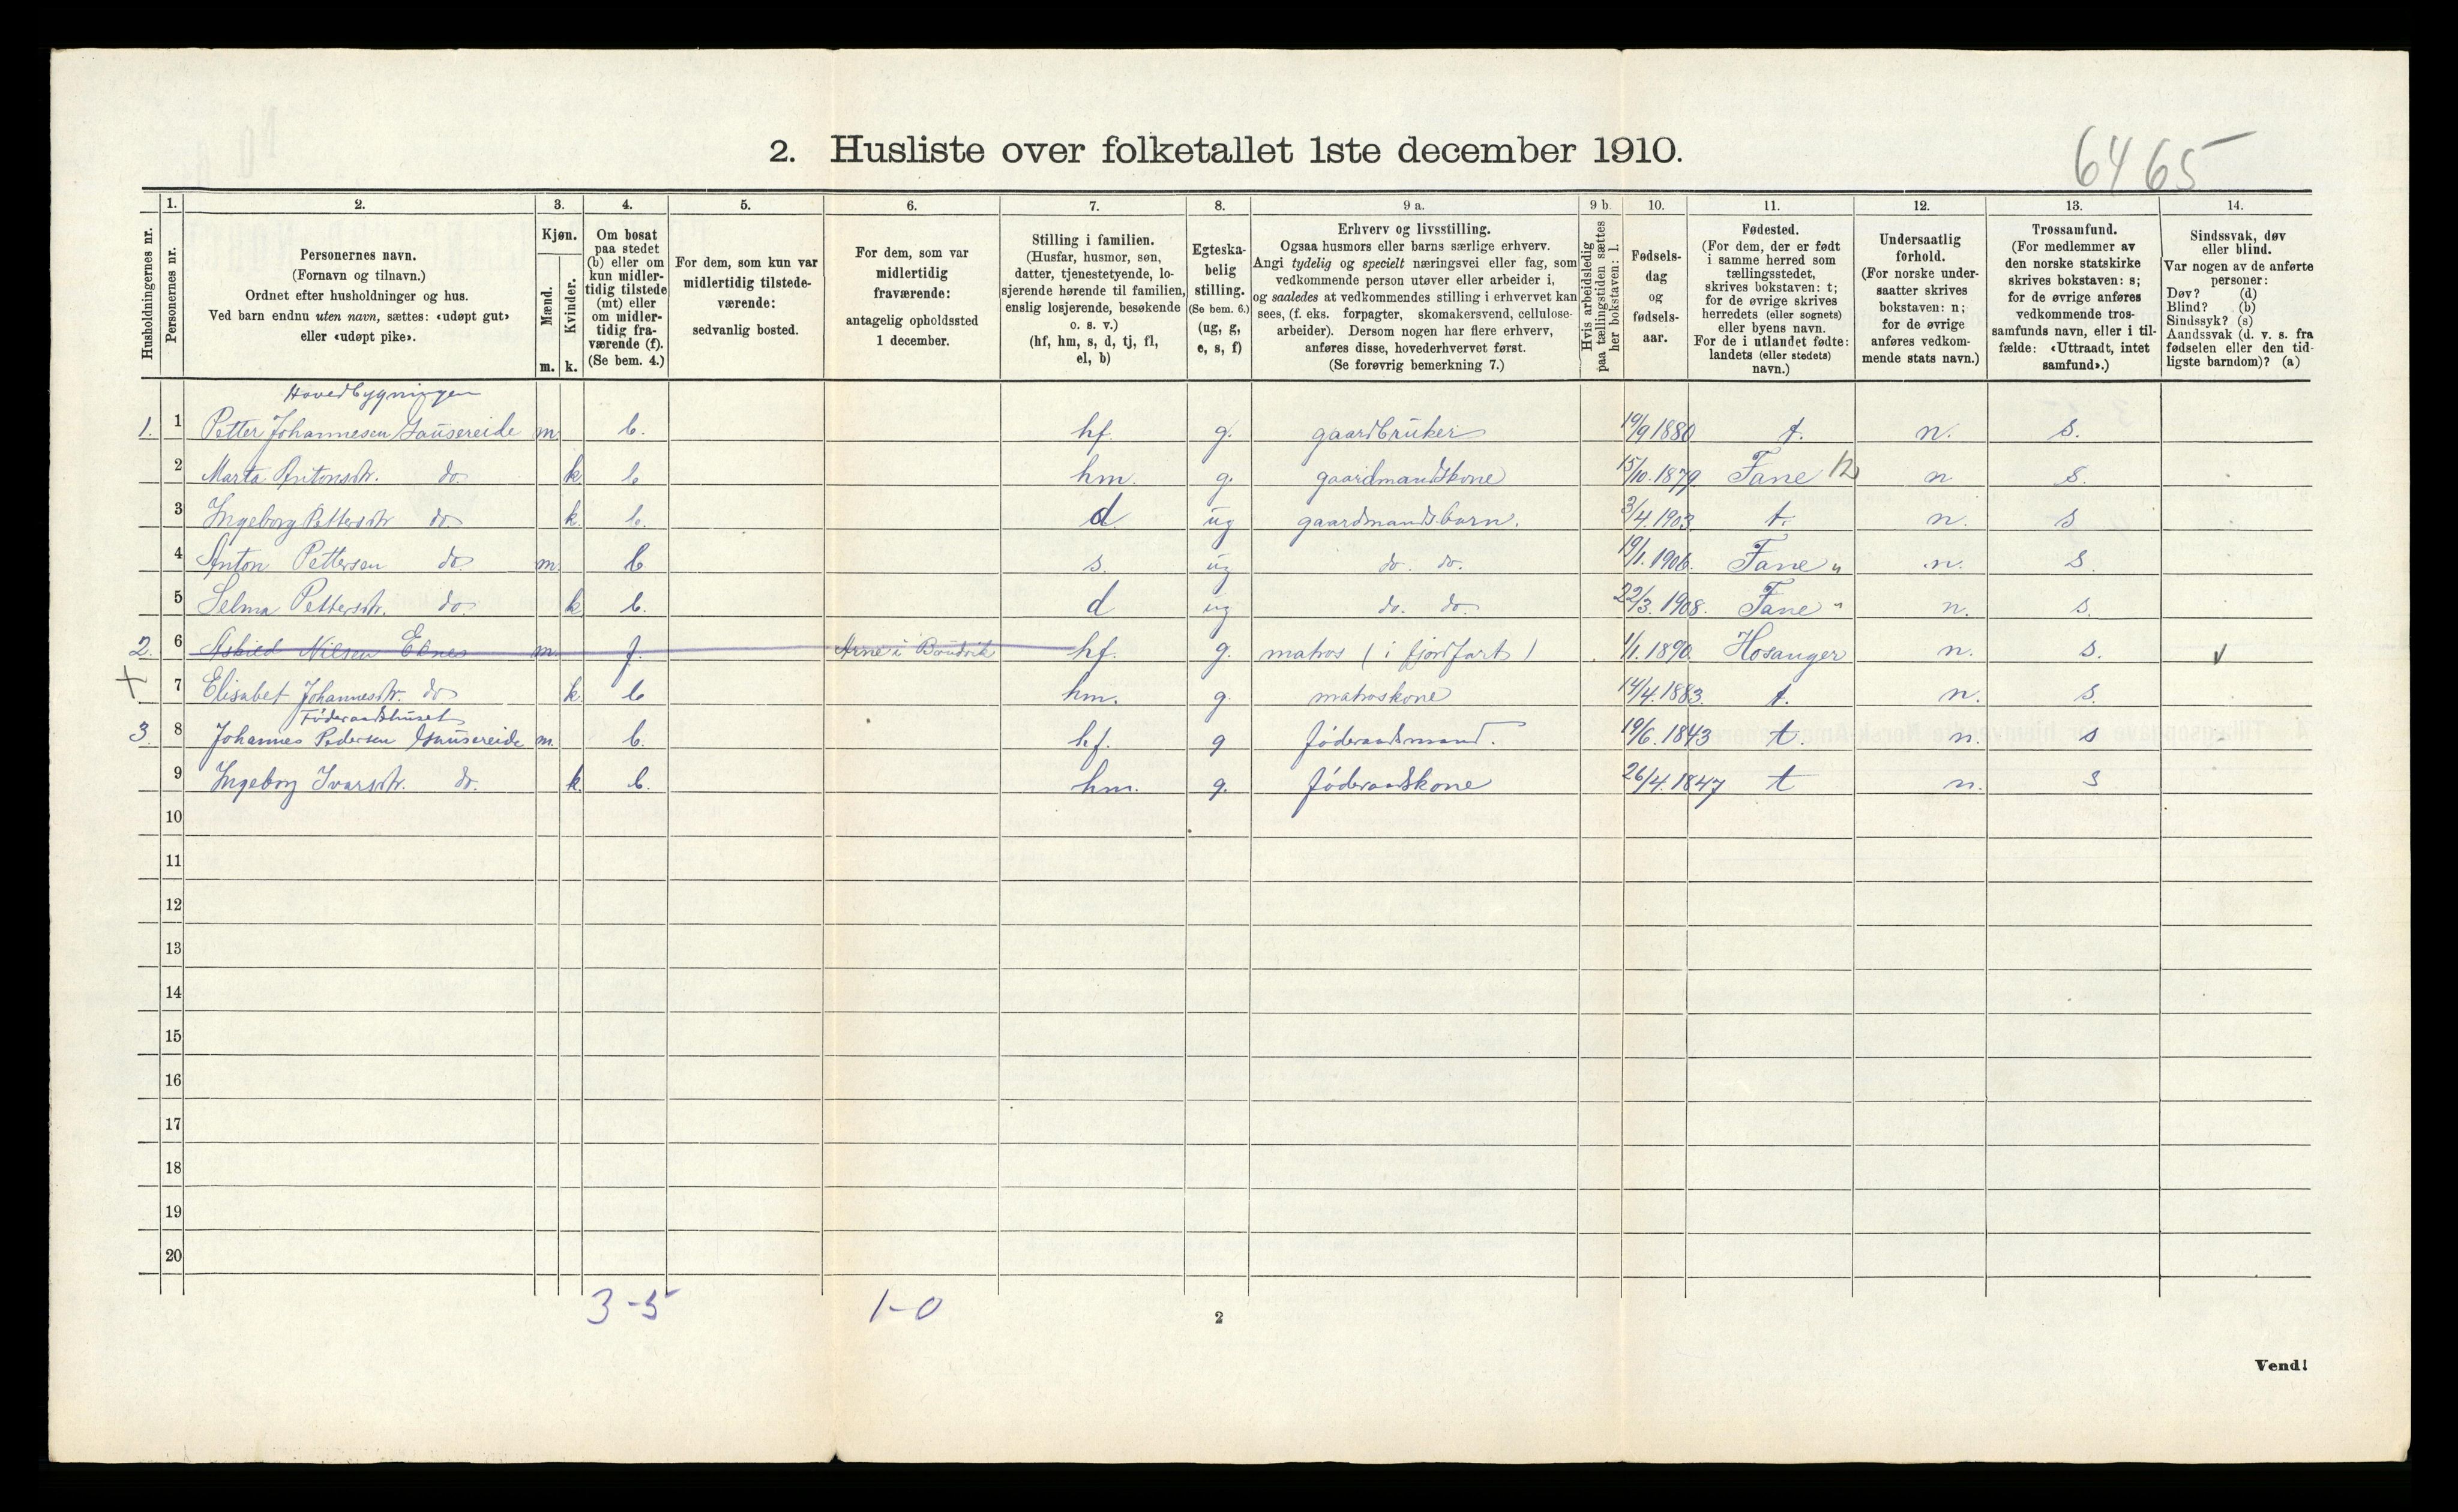 2. Husliste over folketallet 1ste december 1910.
6465
1. 2. 3. 4. 5. 6. 7. 8. 9 a. 9 b. 10. 11. 12. 13. 14.
Husholdningernes nr.
Personernes nr.
Personernes navn.
(Fornavn og tilnavn.)
Ordnet efter husholdninger og hus.
Ved barn endnu uten navn, sættes: «udøpt gut»
eller «udøpt pike».
Kjøn.
Mænd.
Kvinder.
m. k.
Om bosat
paa stedet
(b) eller om
kun midler-
tidig tilstede
(mt) eller
om midler-
tidig fra-
værende (f).
(Se bem. 4.)
For dem, som kun var
midlertidig tilstede-
værende:
sedvanlig bosted.
For dem, som var
midlertidig
fraværende:
antagelig opholdssted
1 december.
Stilling i familien.
(Husfar, husmor, søn,
datter, tjenestetyende, lo-
sjerende hørende til familien,
enslig losjerende, besøkende
o. s. v.)
(hf, hm, s, d, tj, fl,
el, b)
Egteska-
belig
stilling.
(Se bem. 6.)
(ug, g,
e, s, f)
Erhverv og livsstilling.
Ogsaa husmors eller barns særlige erhverv.
Angi tydelig og specielt næringsvei eller fag, som
vedkommende person utøver eller arbeider i,
og saaledes at vedkommendes stilling i erhvervet kan
sees, (f. eks. forpagter, skomakersvend, cellulose-
arbeider). Dersom nogen har flere erhverv,
anføres disse, hovederhvervet først.
(Se forøvrig bemerkning 7.)
Hvis arbeidsledig
paa tællingstiden sættes
her bokstaven: l.
Fødsels-
dag
og
fødsels-
aar.
Fødested.
(For dem, der er født
i samme herred som
tællingsstedet,
skrives bokstaven: t;
for de øvrige skrives
herredets (eller sognets)
eller byens navn.
For de i utlandet fødte:
landets (eller stedets)
navn.)
Undersaatlig
forhold.
(For norske under-
saatter skrives
bokstaven: n;
for de øvrige
anføres vedkom-
mende stats navn.)
Trossamfund.
(For medlemmer av
den norske statskirke
skrives bokstaven: s;
for de øvrige anføres
vedkommende tros-
samfunds navn, eller i til-
fælde: «Uttraadt, intet
samfund».)
Sindssvak, døv
eller blind.
Var nogen av de anførte
personer:
Døv? (d)
Blind? (b)
Sindssyk? (s)
Aandssvak (d. v. s. fra
fødselen eller den tid-
ligste barndom)? (a)
Hovedbygningen
1. 1 Petter Johannesen Gausereide m. b. hf. g. gaardbruker 19/9 1880 t. n. s.
2 Marta Antonsdtr. do k b hm. g. gaardmandskone 15/10. 1879 Fane 12 n s.
3 Ingeborg Pettersdtr do k. b. d ug gaardmandsbarn. 3/4. 1903. t. n. s
4 Anton Pettersen do m. b s. ug do. do. 19/1. 1906. Fane " n. s.
5 Selma Pettersdtr. do k b. d ug do. do. 22/3. 1908. Fane " n. s.
2. 6 Askild Nilsen Eknes m. f. Arne i hf. g. matros (i fjordfart) 1/1. 1890. Hosanger n. s. v
+ 7 Elisabet Johannesdtr. do k. b hm. g. matroskone 14/4. 1883. t. n. s.
Føderaadshuset
3. 8 Johannes Pedersen Gausereide m. b. hf. g føderaadsmand. 19/6. 1843 t. n. s
9 Ingeborg Ivarsdtr. do. k. b. hm. g. føderaadskone 26/4. 1847 t n. s
10
11
12
13
14
15
16
17
18
19
20
3-5 1-0
2
Vend!